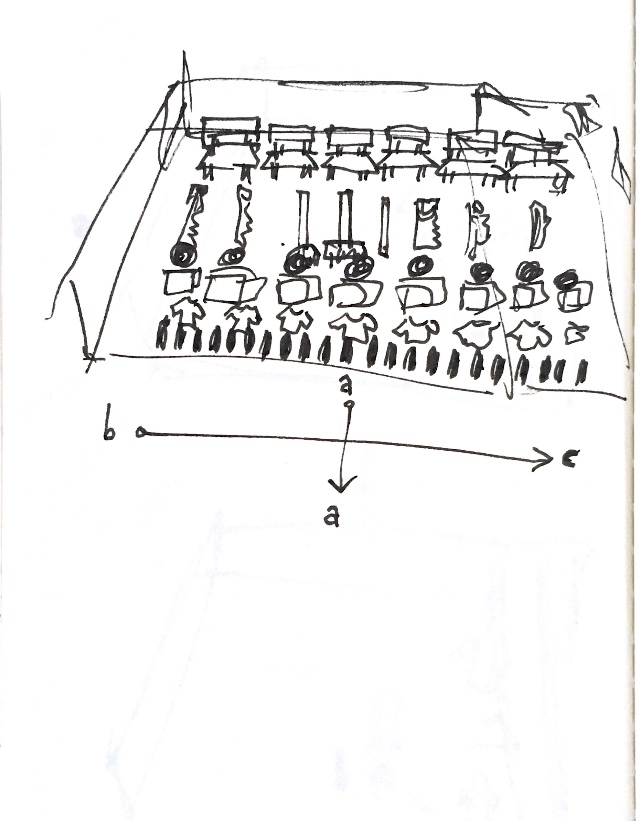 a
b c
a